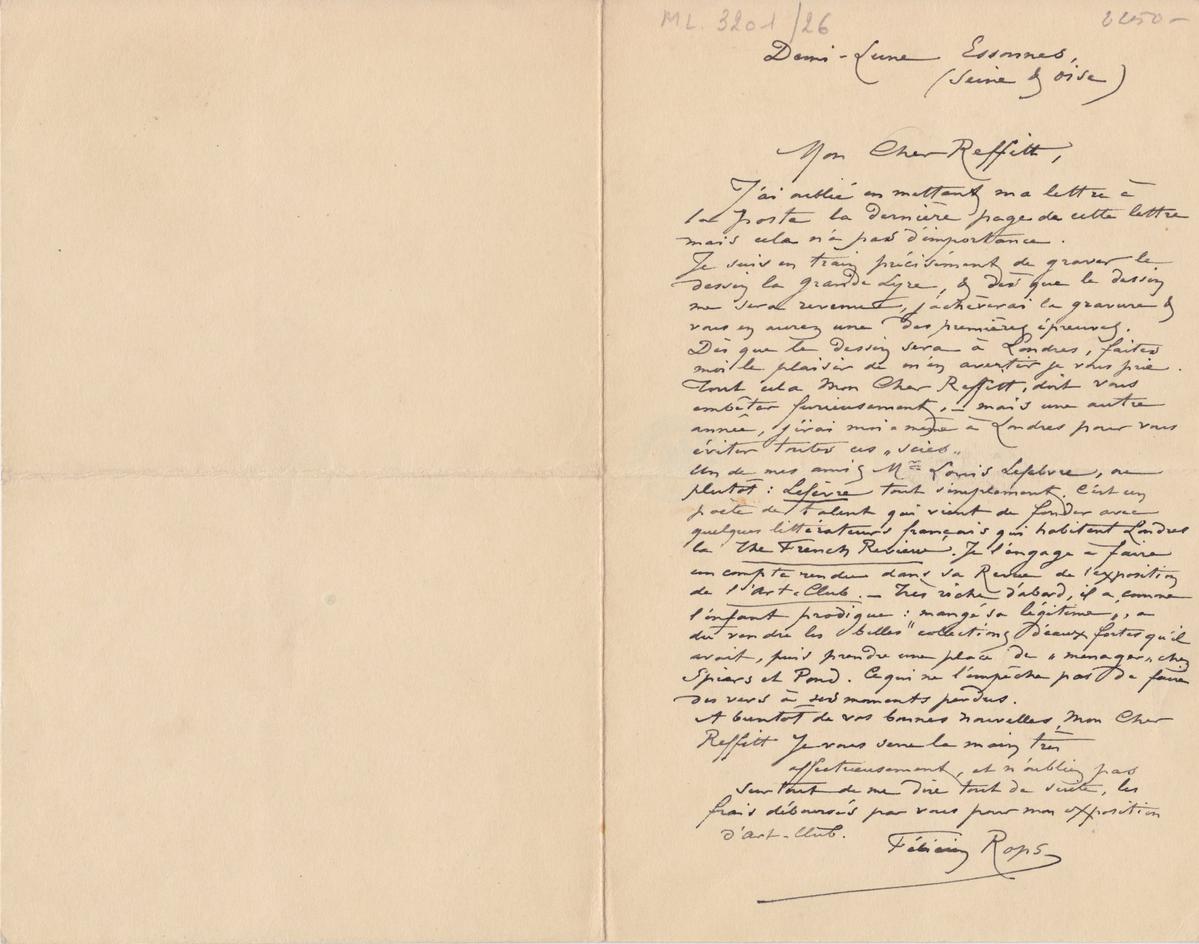 ML. 3201/26
2250-
Demi-Lune Essonnes,
(Seine & Oise)
Mon Cher Reffitt,
J'ai oublié en mettant ma lettre à
la poste la dernière page de cette lettre
mais cela n'a pas d'importance.
Je suis en train précisément de graver le
dessin la grande Lyre, & dès que le dessin
me sera revenu, j'achèverai la gravure &
vous en aurez une des premières épreuves.
Dès que le dessin sera à Londres, faites
moi le plaisir de m'en avertir je vous prie.
Tout cela Mon Cher Reffitt, doit vous
embêter furieusement, – mais une autre
année, j'irai moi même à Londres pour vous
éviter toutes ces „scies„
Un de mes amis Mr Louis Lefebvre, ou
plutôt : Lefèvre tout simplement. C'est un
poète de talent qui vient de fonder avec
quelques littérateurs français qui habitent Londres
la The French Review. Je l'engage à faire
un compte rendu dans sa Revue de l'exposition
de l'Art-Club. – Très riche d'abord, il a, comme
l'enfant prodigue : mangé sa légitime„, a
dû vendre les "belles" collections d'eaux fortes qu'il
avait, puis prendre une place de „menager„ chez
Spiers et Pond. Ce qui ne l'empêche pas de faire
des vers à ses moments perdus.
A bientôt de vos bonnes nouvelles, Mon Cher
Reffitt Je vous serre la main très
affectueusement, et n'oubliez pas
surtout de me dire tout de suite, les
frais déboursés par vous pour mon exposition
d'Art-Club.
Félicien Rops